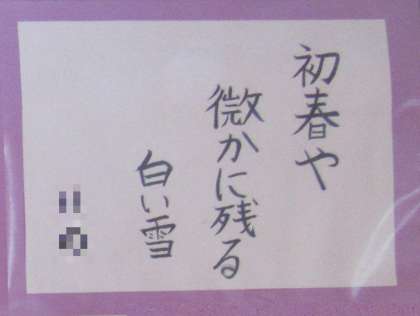 初春や
微かに残る
白い雪